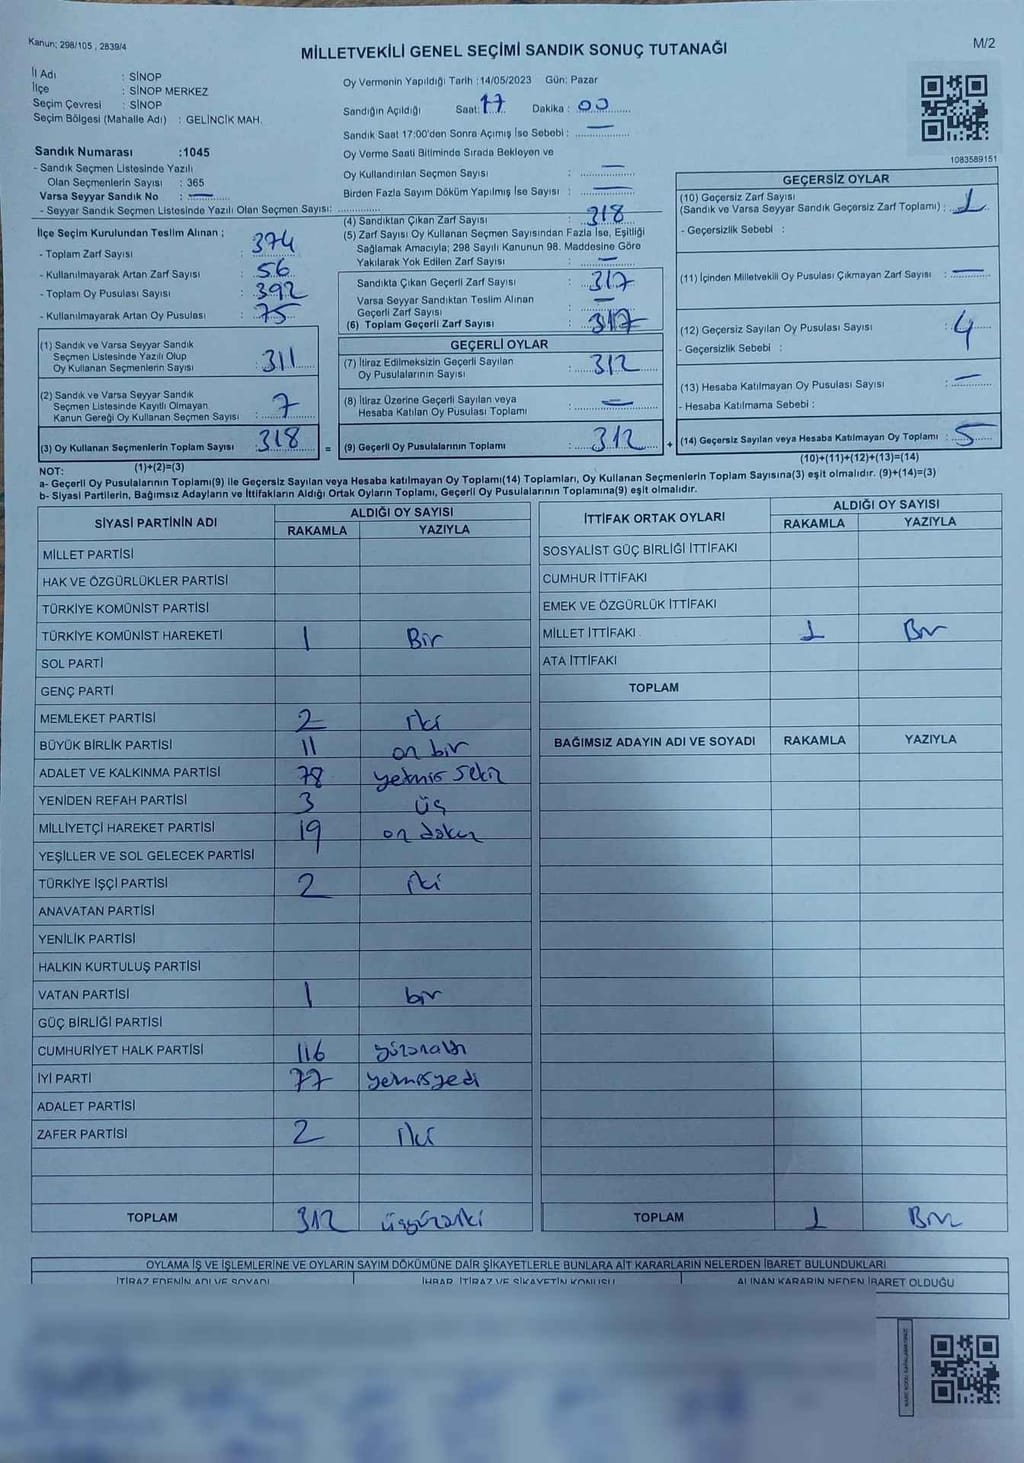 Kanun: 298/105 , 2839/4
MİLLETVEKİLİ GENEL SEÇİMİ SANDIK SONUÇ TUTANAĞI
M/2
İl Adı : SİNOP
İlçe : SİNOP MERKEZ
Seçim Çevresi : SİNOP
Seçim Bölgesi (Mahalle Adı) : GELİNCİK MAH.
Oy Vermenin Yapıldığı Tarih :14/05/2023 Gün: Pazar
Sandığın Açıldığı Saat: 17 Dakika : 00
Sandık Saat 17:00'den Sonra Açımış İse Sebebi : —
Oy Verme Saati Bitiminde Sırada Bekleyen ve
Oy Kullandırılan Seçmen Sayısı : —
Birden Fazla Sayım Döküm Yapılmış İse Sayısı : —
1083589151
Sandık Numarası :1045
- Sandık Seçmen Listesinde Yazılı
Olan Seçmenlerin Sayısı : 365
Varsa Seyyar Sandık No : —
- Seyyar Sandık Seçmen Listesinde Yazılı Olan Seçmen Sayısı:
İlçe Seçim Kurulundan Teslim Alınan :
- Toplam Zarf Sayısı : 374
- Kullanılmayarak Artan Zarf Sayısı : 56
- Toplam Oy Pusulası Sayısı : 392
- Kullanılmayarak Artan Oy Pusulası : 75
(1) Sandık ve Varsa Seyyar Sandık
Seçmen Listesinde Yazılı Olup
Oy Kullanan Seçmenlerin Sayısı : 311
(2) Sandık ve Varsa Seyyar Sandık
Seçmen Listesinde Kayıtlı Olmayan
Kanun Gereği Oy Kullanan Seçmen Sayısı : 7
(3) Oy Kullanan Seçmenlerin Toplam Sayısı : 318
(1)+(2)=(3)
(4) Sandıktan Çıkan Zarf Sayısı : 318
(5) Zarf Sayısı Oy Kullanan Seçmen Sayısından Fazla İse, Eşitliği
Sağlamak Amacıyla; 298 Sayılı Kanunun 98. Maddesine Göre
Yakılarak Yok Edilen Zarf Sayısı : —
Sandıkta Çıkan Geçerli Zarf Sayısı : 317
Varsa Seyyar Sandıktan Teslim Alınan
Geçerli Zarf Sayısı : —
(6) Toplam Geçerli Zarf Sayısı : 317
GEÇERLİ OYLAR
(7) İtiraz Edilmeksizin Geçerli Sayılan
Oy Pusulalarının Sayısı : 312
(8) İtiraz Üzerine Geçerli Sayılan veya
Hesaba Katılan Oy Pusulası Toplamı : —
= (9) Geçerli Oy Pusulalarının Toplamı : 312
GEÇERSİZ OYLAR
(10) Geçersiz Zarf Sayısı
(Sandık ve Varsa Seyyar Sandık Geçersiz Zarf Toplamı) : 1
- Geçersizlik Sebebi :
(11) İçinden Milletvekili Oy Pusulası Çıkmayan Zarf Sayısı : —
(12) Geçersiz Sayılan Oy Pusulası Sayısı : 4
- Geçersizlik Sebebi :
(13) Hesaba Katılmayan Oy Pusulası Sayısı : —
- Hesaba Katılmama Sebebi :
+ (14) Geçersiz Sayılan veya Hesaba Katılmayan Oy Toplamı : 5
(10)+(11)+(12)+(13)=(14)
NOT:
a- Geçerli Oy Pusulalarının Toplamı(9) ile Geçersiz Sayılan veya Hesaba katılmayan Oy Toplamı(14) Toplamları, Oy Kullanan Seçmenlerin Toplam Sayısına(3) eşit olmalıdır. (9)+(14)=(3)
b- Siyasi Partilerin, Bağımsız Adayların ve İttifakların Aldığı Ortak Oyların Toplamı, Geçerli Oy Pusulalarının Toplamına(9) eşit olmalıdır.
SİYASİ PARTİNİN ADI ALDIĞI OY SAYISI
RAKAMLA YAZIYLA
MİLLET PARTİSİ
HAK VE ÖZGÜRLÜKLER PARTİSİ
TÜRKİYE KOMÜNİST PARTİSİ
TÜRKİYE KOMÜNİST HAREKETİ 1 Bir
SOL PARTİ
GENÇ PARTİ
MEMLEKET PARTİSİ 2 iki
BÜYÜK BİRLİK PARTİSİ 11 on bir
ADALET VE KALKINMA PARTİSİ 78 yetmiş sekiz
YENİDEN REFAH PARTİSİ 3 üç
MİLLİYETÇİ HAREKET PARTİSİ 19 on dokuz
YEŞİLLER VE SOL GELECEK PARTİSİ
TÜRKİYE İŞÇİ PARTİSİ 2 iki
ANAVATAN PARTİSİ
YENİLİK PARTİSİ
HALKIN KURTULUŞ PARTİSİ
VATAN PARTİSİ 1 bir
GÜÇ BİRLİĞİ PARTİSİ
CUMHURİYET HALK PARTİSİ 116 yüzonaltı
İYİ PARTİ 77 yetmişyedi
ADALET PARTİSİ
ZAFER PARTİSİ 2 iki
TOPLAM 312 üçyüzoniki
İTTİFAK ORTAK OYLARI ALDIĞI OY SAYISI
RAKAMLA YAZIYLA
SOSYALİST GÜÇ BİRLİĞİ İTTİFAKI
CUMHUR İTTİFAKI
EMEK VE ÖZGÜRLÜK İTTİFAKI
MİLLET İTTİFAKI 1 Bir
ATA İTTİFAKI
TOPLAM
BAĞIMSIZ ADAYIN ADI VE SOYADI RAKAMLA YAZIYLA
TOPLAM 1 Bir
OYLAMA İŞ VE İŞLEMLERİNE VE OYLARIN SAYIM DÖKÜMÜNE DAİR ŞİKAYETLERLE BUNLARA AİT KARARLARIN NELERDEN İBARET BULUNDUKLARI
İTİRAZ EDENİN ADI VE SOYADI İHBAR, İTİRAZ VE ŞİKAYETİN KONUSU ALINAN KARARIN NEDEN İBARET OLDUĞU